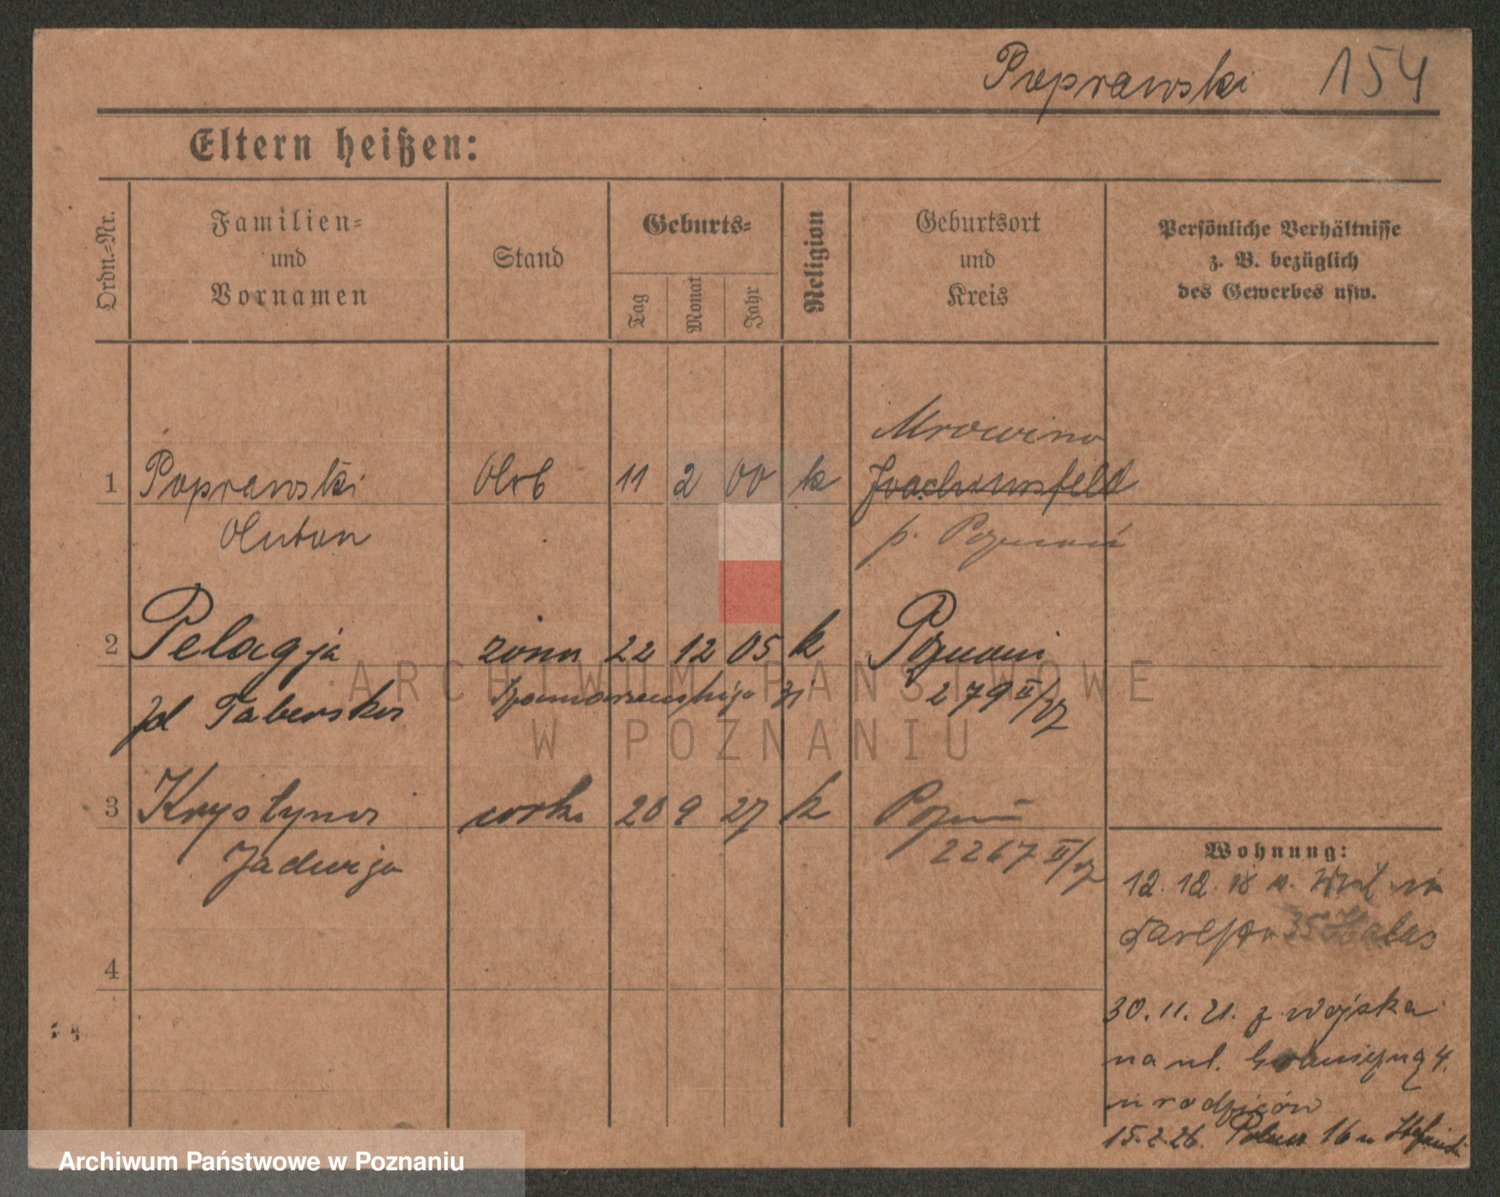 Poprawski 154
Eltern heißen:
Ordn.-Nr.
Familien-
und
Vornamen
Stand
Geburts-
Tag
Monat
Jahr
Religion
Geburtsort
und
Kreis
Persönliche Verhältnisse
z. B. bezüglich
des Gewerbes usw.
Mrowino
1 Poprawski Arb 11 2 00 k Joachimsfeld
Anton p. Poznań
2 Pelagja żona 22 12 05 k Poznań
zd Taberska 279 II/27
3 Krystyna córka 20 9 27 k Pozn
Jadwiga 2267 II/27
4
Wohnung:
12. 12. 18
30. 11. 21. z wojska
na ul. 4.
u rodziców
15. 2. 26. 16 u
ARCHIWUM PAŃSTWOWE
W POZNANIU
Archiwum Państwowe w Poznaniu